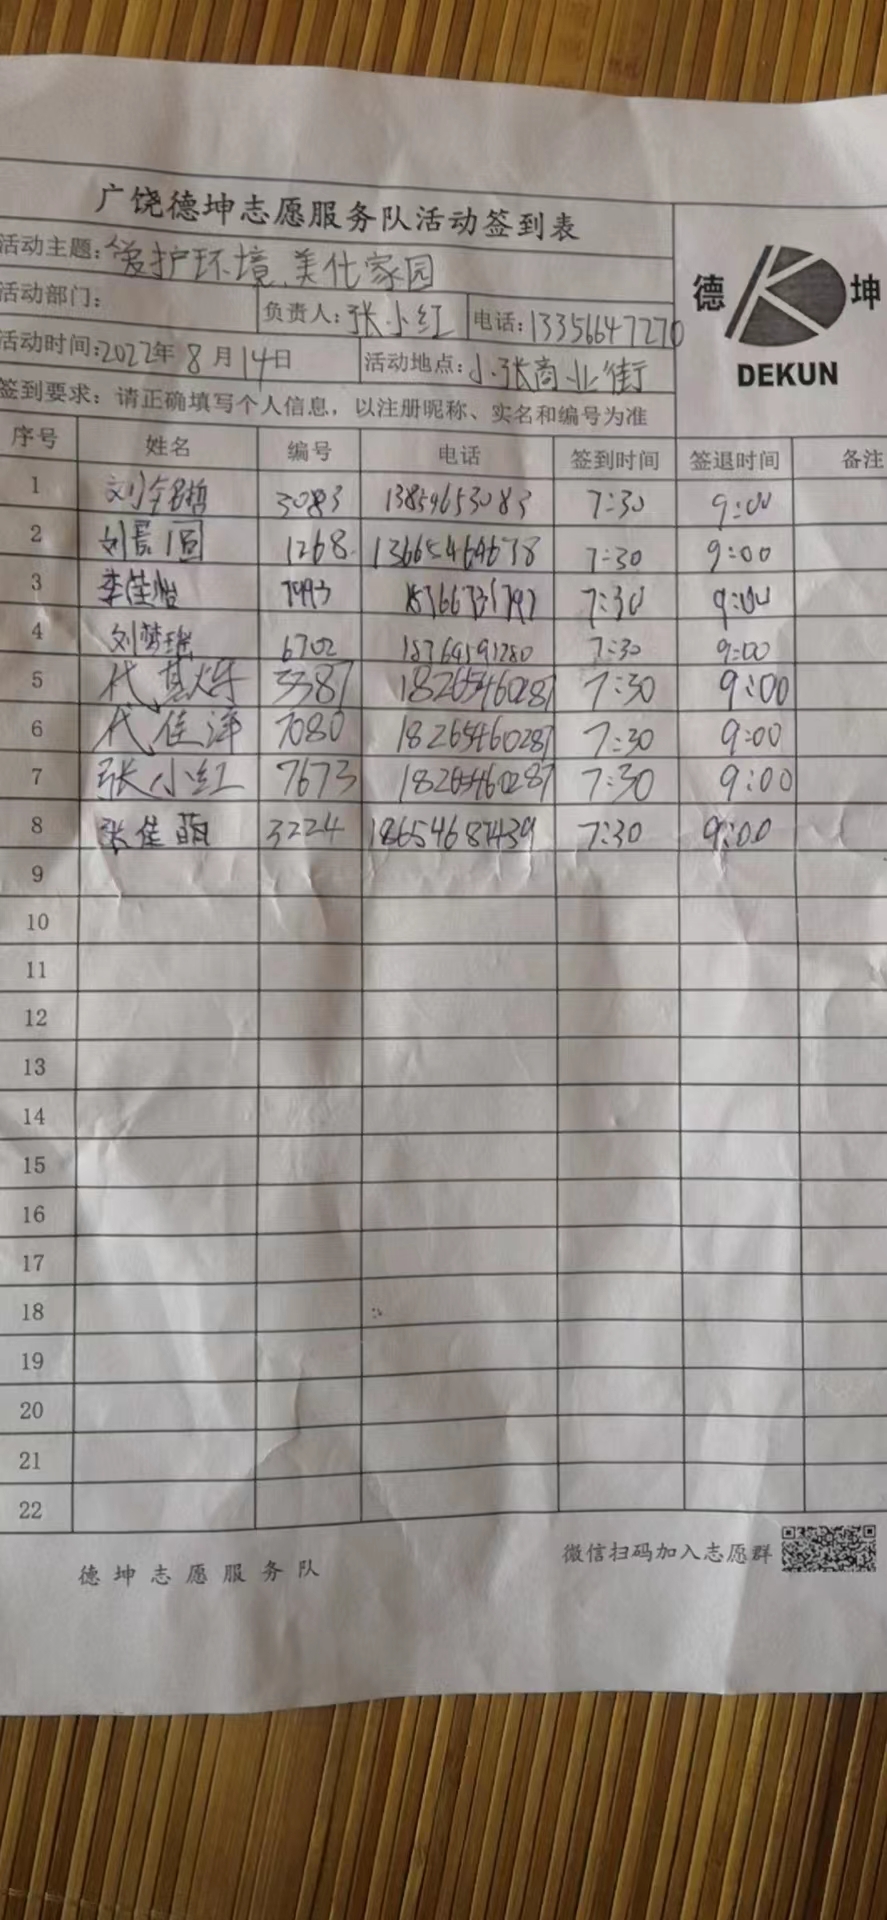 广饶德坤志愿服务队活动签到表
活动主题:爱护环境、美化家园
活动部门:
负责人:张小红 电话:13356647270
德 坤
DEKUN
活动时间:2022年8月14日 活动地点:小张商业街
签到要求:请正确填写个人信息,以注册昵称、实名和编号为准
序号 姓名 编号 电话 签到时间 签退时间 备注
1 刘铭哲 3083 13854653083 7:30 9:00
2 刘 1268 7:30 9:00
3 李佳怡 7993 7:30 9:00
4 刘梦瑶 6702 18764591280 7:30 9:00
5 代其烁 3387 18265460287 7:30 9:00
6 代佳泽 7080 18265460287 7:30 9:00
7 张小红 7673 18265460287 7:30 9:00
8 张佳萌 3224 18654687439 7:30 9:00
9
10
11
12
13
14
15
16
17
18
19
20
21
22
德坤志愿服务队 微信扫码加入志愿群